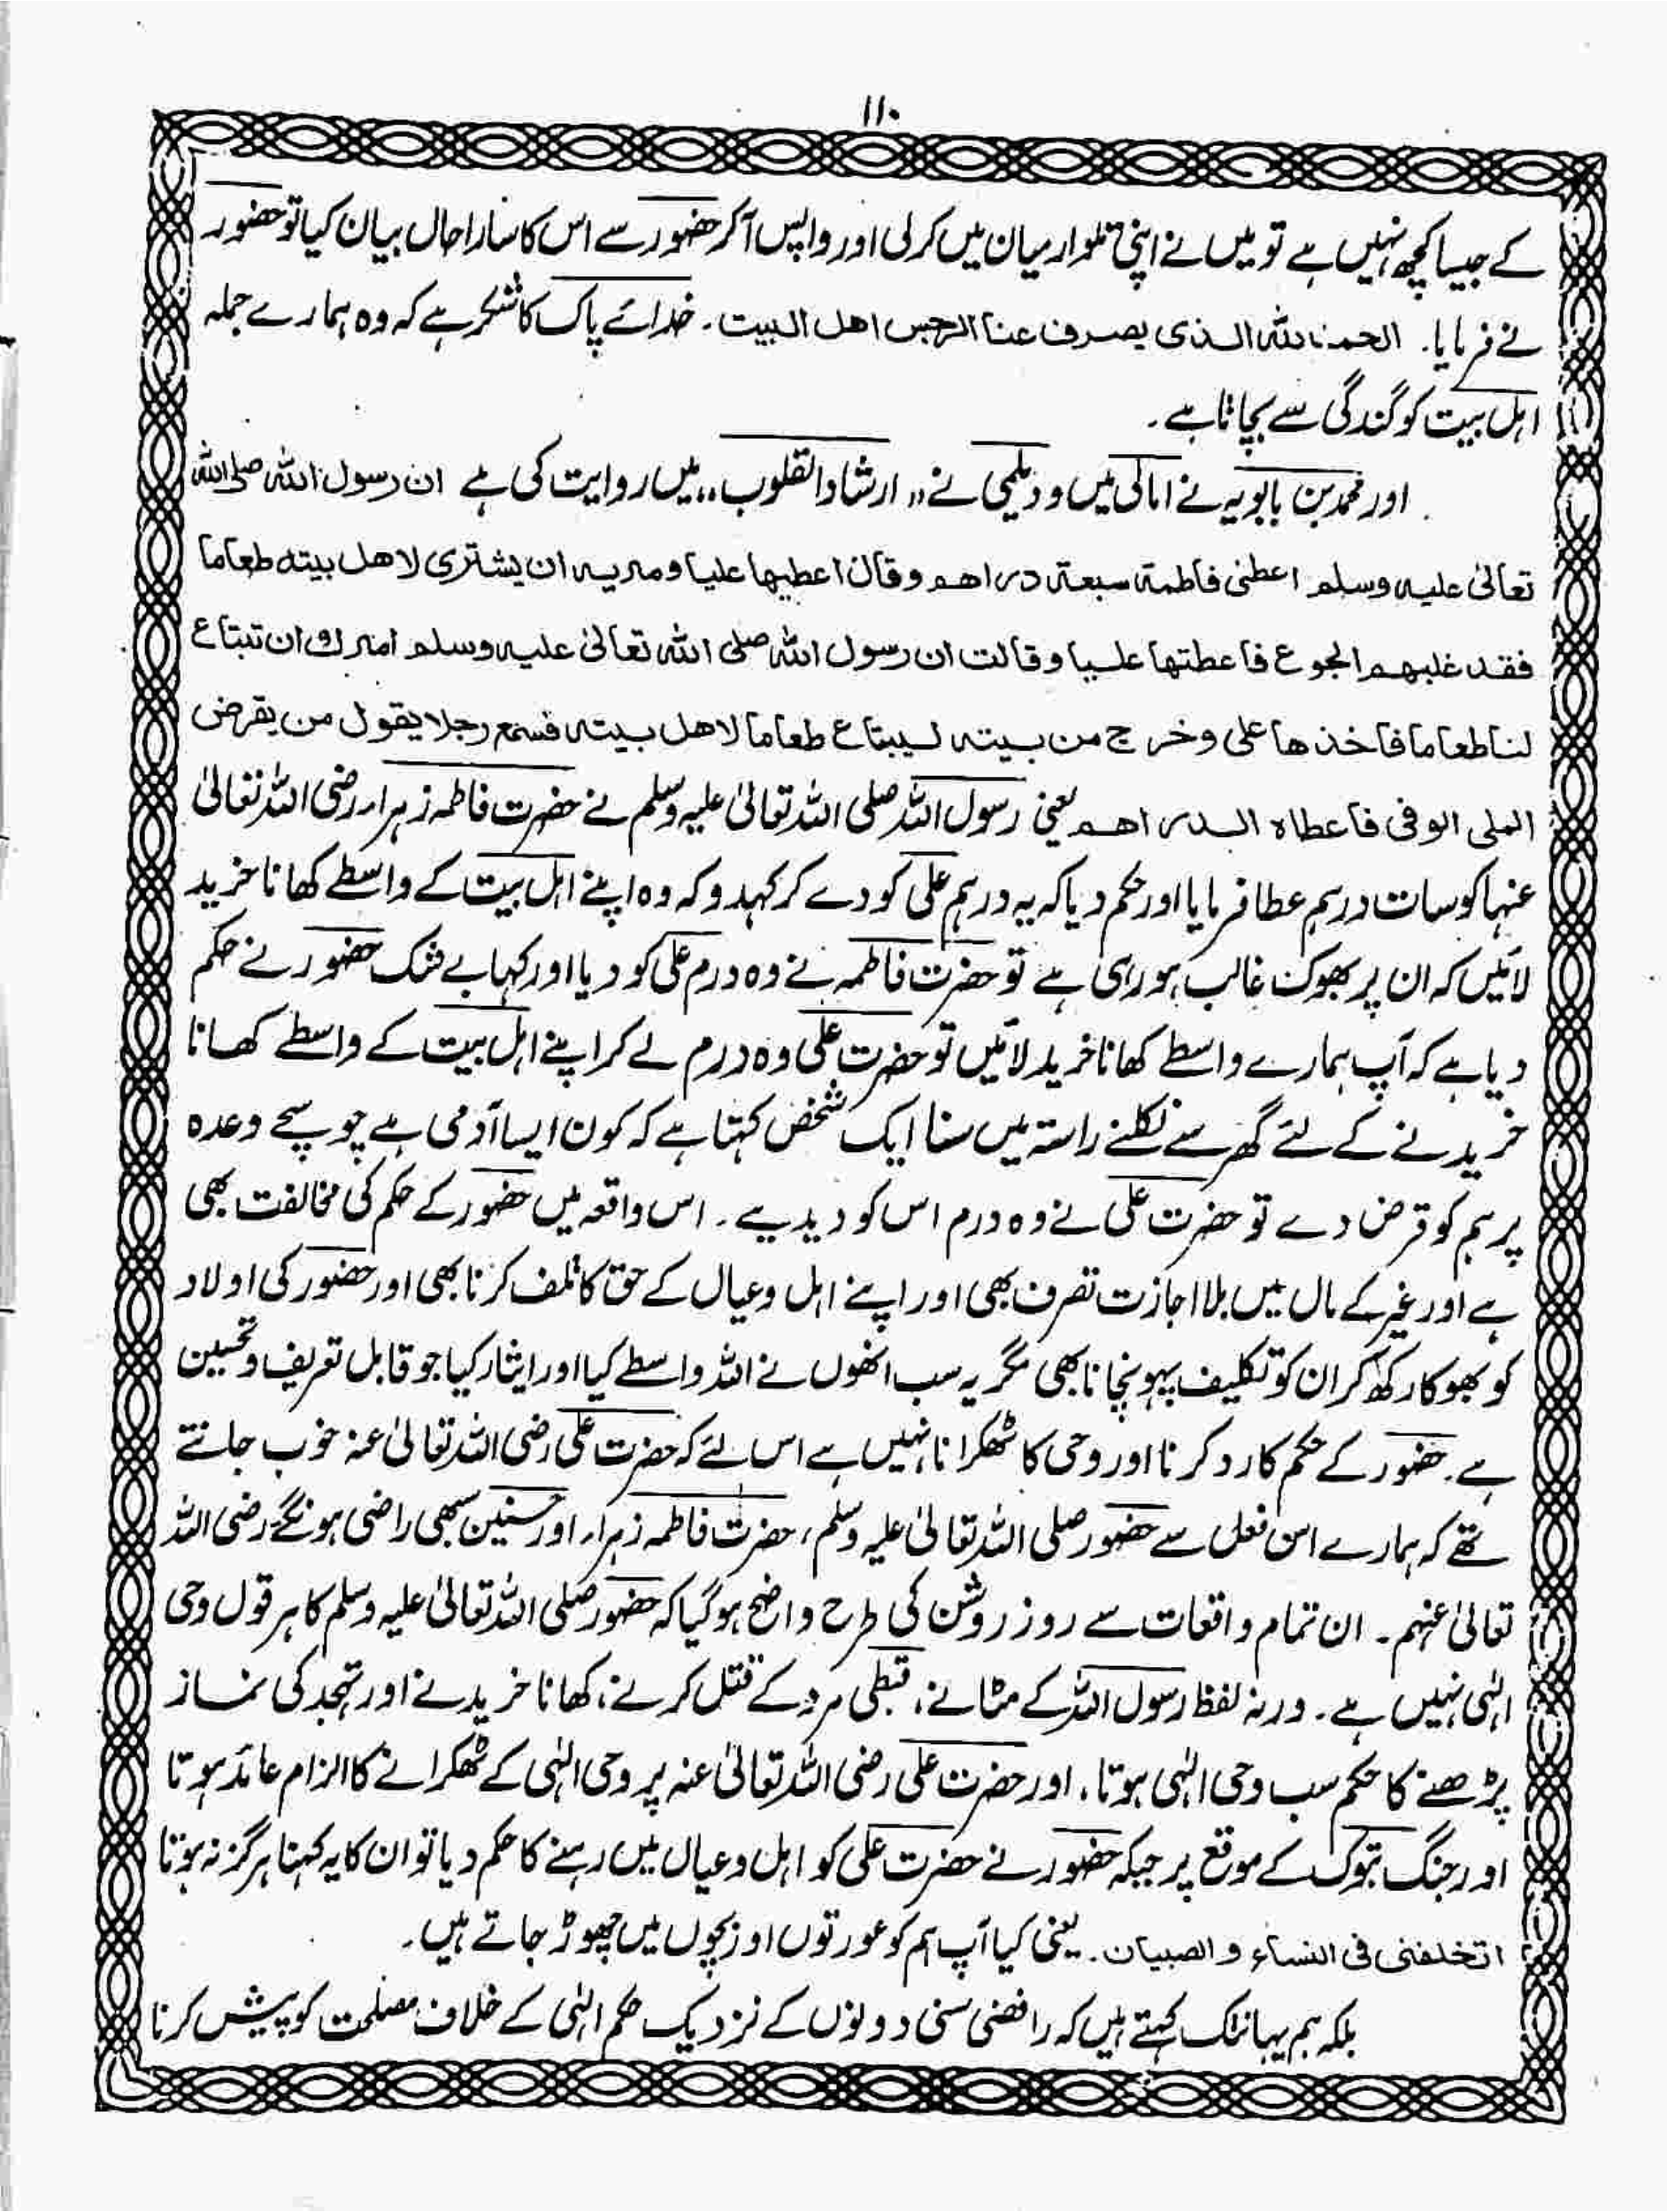 ۱۱۰
کے جیسا کچھ نہیں ہے تو میں نے اپنی تلوار میان میں کرلی اور واپس آکر حضور سے اس کا سارا حال بیان کیا تو حضور
نے فرمایا۔ الحمد للہ الذی یصرف عنا الرجس اھل البیت۔ خدائے پاک کا شکر ہے کہ وہ ہمارے جملہ
اہل بیت کو گندگی سے بچاتا ہے۔
اور محمد بن بابویہ نے امالی میں و دیلمی نے ,, ارشاد القلوب,, میں روایت کی ہے ان رسول اللہ صلی اللہ
تعالیٰ علیہ وسلم اعطی فاطمۃ سبعۃ دراھم وقال اعطیھا علیا ومریہ ان یشتری لاھل بیتہ طعاما
فقد غلبھم الجوع فاعطتھا علیا وقالت ان رسول اللہ صلی اللہ تعالیٰ علیہ وسلم امرك ان تبتاع
لنا طعاما فاخذھا علی وخرج من بیتہ لیبتاع طعاما لاھل بیتہ فسمع رجلا یقول من یقرض
الملی الوفی فاعطاہ الدراھم یعنی رسول اللہ صلی اللہ تعالیٰ علیہ وسلم نے حضرت فاطمہ زہراء رضی اللہ تعالیٰ
عنہا کو سات درہم عطا فرمایا اور حکم دیا کہ یہ درہم علی کو دے کر کہدو کہ وہ اپنے اہل بیت کے واسطے کھانا خرید
لائیں کہ ان پر بھوک غالب ہو رہی ہے تو حضرت فاطمہ نے وہ درم علی کو دیا اور کہا بے شک حضور نے حکم
دیا ہے کہ آپ ہمارے واسطے کھانا خرید لائیں تو حضرت علی وہ درم لے کر اپنے اہل بیت کے واسطے کھانا
خریدنے کے لئے گھر سے نکلے راستہ میں سنا ایک شخص کہتا ہے کہ کون ایسا آدمی ہے جو سچے وعدہ
پر ہم کو قرض دے تو حضرت علی نے وہ درم اس کو دیدیے۔ اس واقعہ میں حضور کے حکم کی مخالفت بھی
ہے اور غیر کے مال میں بلا اجازت تصرف بھی اور اپنے اہل وعیال کے حق کا تلف کرنا بھی اور حضور کی اولاد
کو بھوکا رکھ کر ان کو تکلیف پہونچانا بھی مگر یہ سب انھوں نے اللہ واسطے کیا اور ایثار کیا جو قابل تعریف وتحسین
ہے۔ حضور کے حکم کا رد کرنا اور وحی کا ٹھکرانا نہیں ہے اس لئے کہ حضرت علی رضی اللہ تعالیٰ عنہ خوب جانتے
تھے کہ ہمارے اس فعل سے حضور صلی اللہ تعالیٰ علیہ وسلم، حضرت فاطمہ زہراء اور حسنین سبھی راضی ہونگے رضی اللہ
تعالیٰ عنہم۔ ان تمام واقعات سے روز روشن کی طرح واضح ہوگیا کہ حضور صلی اللہ تعالیٰ علیہ وسلم کا ہر قول وحی
الٰہی نہیں ہے۔ ورنہ لفظ رسول اللہ کے مٹانے، قبطی مرد کے قتل کرنے، کھانا خریدنے اور تہجد کی نماز
پڑھنے کا حکم سب وحی الٰہی ہوتا، اور حضرت علی رضی اللہ تعالیٰ عنہ پر وحی الٰہی کے ٹھکرانے کا الزام عائد ہوتا
اور جنگ تبوک کے موقع پر جبکہ حضور نے حضرت علی کو اہل وعیال میں رہنے کا حکم دیا تو ان کا یہ کہنا ہرگز نہ ہوتا
اتخلفنی فی النساء و الصبیان۔ یعنی کیا آپ ہم کو عورتوں اور بچوں میں چھوڑ جاتے ہیں۔
بلکہ ہم یہانتک کہتے ہیں کہ رافضی سنی دونوں کے نزدیک حکم الٰہی کے خلاف مصلحت کو پیش کرنا